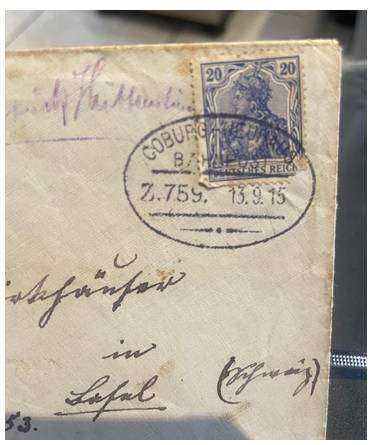 20 20
DEUTSCHES REICH
COBURG
BAHNPOST
Z.759. 13.9.15
irkhäuser
in
Basel (Schweiz)
53.